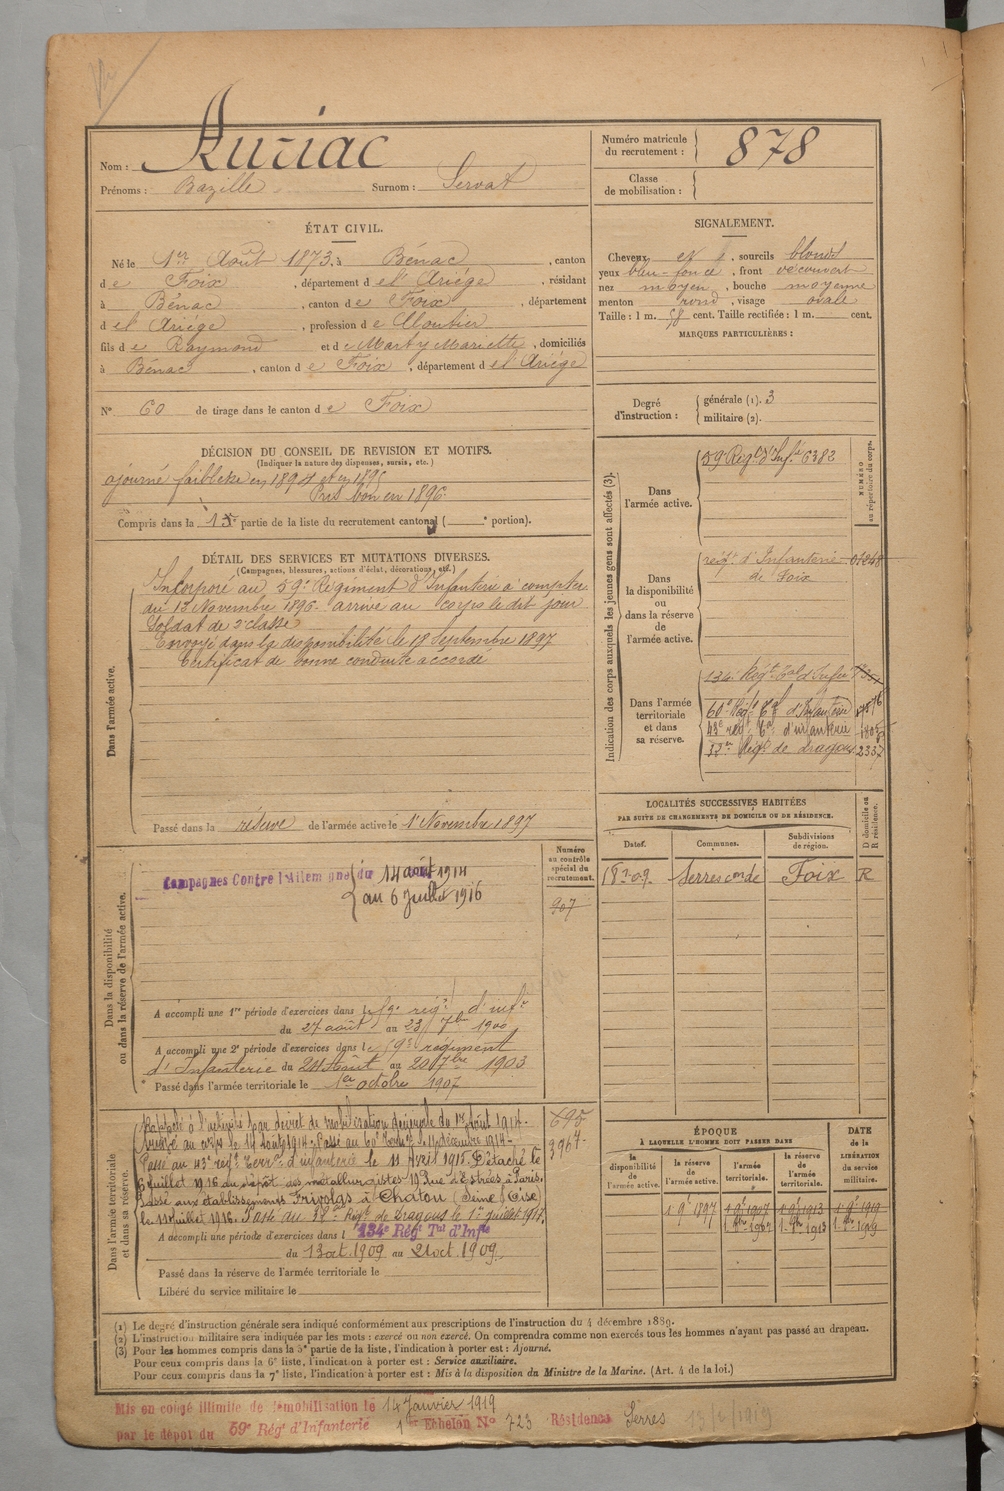 Auriac
Nom :
Prénoms : Bazille Surnom : Servat
Numéro matricule
du recrutement : 878
Classe
de mobilisation :
ÉTAT CIVIL.
Né le 1er Août 1873, à Bénac, canton
de Foix, département de l'Ariége, résidant
à Bénac, canton de Foix, département
de l'Ariége, profession de
fils de Raymond et de Marty Mariette, domiciliés
à Bénac, canton de Foix, département de l'Ariége
N° 60 de tirage dans le canton de Foix
SIGNALEMENT.
Cheveux et, sourcils blonds
yeux bleu-foncé, front découvert
nez moyen, bouche moyenne
menton rond, visage ovale
Taille : 1 m. 58 cent. Taille rectifiée : 1 m. cent.
MARQUES PARTICULIÈRES :
Degré
d'instruction :
générale (1). 3
militaire (2).
DÉCISION DU CONSEIL DE REVISION ET MOTIFS.
(Indiquer la nature des dispenses, sursis, etc.)
ajourné faiblesse en 1894 et en 1895
Pris bon en 1896
Compris dans la partie de la liste du recrutement cantonal ( e portion).
DÉTAIL DES SERVICES ET MUTATIONS DIVERSES.
(Campagnes, blessures, actions d'éclat, décorations, etc.)
Dans l'armée active.
Incorporé au 59e Régiment d'Infanterie à compter
du 13 Novembre 1896. arrivé au corps le dit jour
Soldat de 2e classe
Envoyé dans la disponibilité le 18 Septembre 1897
Certificat de bonne conduite accordé
Passé dans la réserve de l'armée active le 1er Novembre 1897
Indication des corps auxquels les jeunes gens sont affectés (3).
NUMÉRO
au répertoire du corps.
Dans
l'armée active.
59 Régt d'Infie 6382
Dans
la disponibilité
ou
dans la réserve
de
l'armée active.
régt d'Infanterie
de Foix
Dans l'armée
territoriale
et dans
sa réserve.
134e Régt Tal d'Infie
60e Régt Tal d'Infanterie
43e régt Tal d'infanterie
Régt de Dragons 2337
LOCALITÉS SUCCESSIVES HABITÉES
PAR SUITE DE CHANGEMENTS DE DOMICILE OU DE RÉSIDENCE.
D domicile ou
R résidence.
Dates. Communes. Subdivisions
de région.
Serres Foix R
Dans la disponibilité
ou dans la réserve de l'armée active.
Numéro
au contrôle
spécial du
recrutement.
907
Campagnes Contre l'Allemagne du 14 août 1914
au 6 Juillet 1916
A accompli une 1re période d'exercices dans le 59e régt d'infie
du 27 août au 23 7bre 1900
A accompli une 2e période d'exercices dans le 59e régiment
d'Infanterie du 24 Août au 20 7bre 1903
Passé dans l'armée territoriale le 1er octobre 1907
Dans l'armée territoriale
et dans sa réserve.
Rappelé à l'activité par décret de mobilisation générale du 1er Août 1914.
Arrivé au corps le 14 août 1914. Passé au 60e le 11 décembre 1914.
Passé au 43e régt Terral d'infanterie le 11 Avril 1915. Détaché le
6 juillet 1916 au dépôt des métallurgistes 19 Rue d'Estrées à Paris.
Passé aux établissements Frivolas à Chatou (Seine & Oise)
le 11 juillet 1916. Passé au Régt de Dragons le 1er juillet 1917.
A accompli une période d'exercices dans l 134e Régt Tal d'Infie
du 13 oct. 1909 au 21 oct. 1909
Passé dans la réserve de l'armée territoriale le
Libéré du service militaire le
695
3967
ÉPOQUE
À LAQUELLE L'HOMME DOIT PASSER DANS
DATE
de la
LIBÉRATION
du service
militaire.
la
disponibilité
la réserve
de
l'armée active.
l'armée
territoriale.
la réserve
de
l'armée
territoriale.
1 9bre 1897 1 9bre 1907 1 9bre 1913 1 9bre 1919
(1) Le degré d'instruction générale sera indiqué conformément aux prescriptions de l'instruction du 4 décembre 1889.
(2) L'instruction militaire sera indiquée par les mots : exercé ou non exercé. On comprendra comme non exercés tous les hommes n'ayant pas passé au drapeau.
(3) Pour les hommes compris dans la 5e partie de la liste, l'indication à porter est : Ajourné.
Pour ceux compris dans la 6e liste, l'indication à porter est : Service auxiliaire.
Pour ceux compris dans la 7e liste, l'indication à porter est : Mis à la disposition du Ministre de la Marine. (Art. 4 de la loi.)
Mis en congé illimité de démobilisation le 14 Janvier 1919
1er Echelon N° 723 Résidence Serres
par le dépôt du 59e Régt d'Infanterie